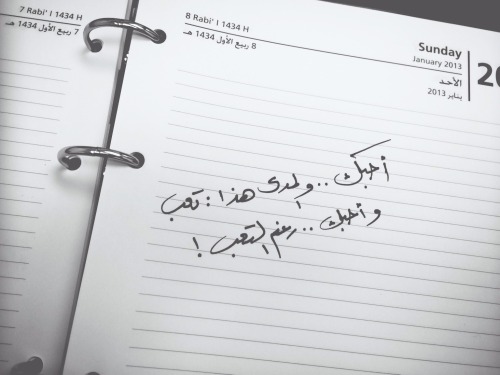 7 Rabi' I 1434 H
7 ربيع الأول 1434 هـ
8 Rabi' I 1434 H
8 ربيع الأول 1434 هـ
Sunday
January 2013
الأحد
يناير 2013
20
أحبك .. ولمدى هذا : تعب
و أحبك .. رغم التعب !